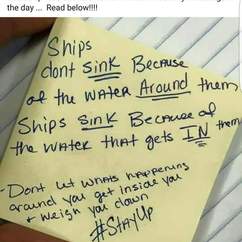 the day ... Read below!!!!
Ships
dont Sink Because
of the water Around them
Ships Sink Because of
the water that gets IN them
- Dont let whats happening
around you get inside you
+ weigh you down
#StayUp